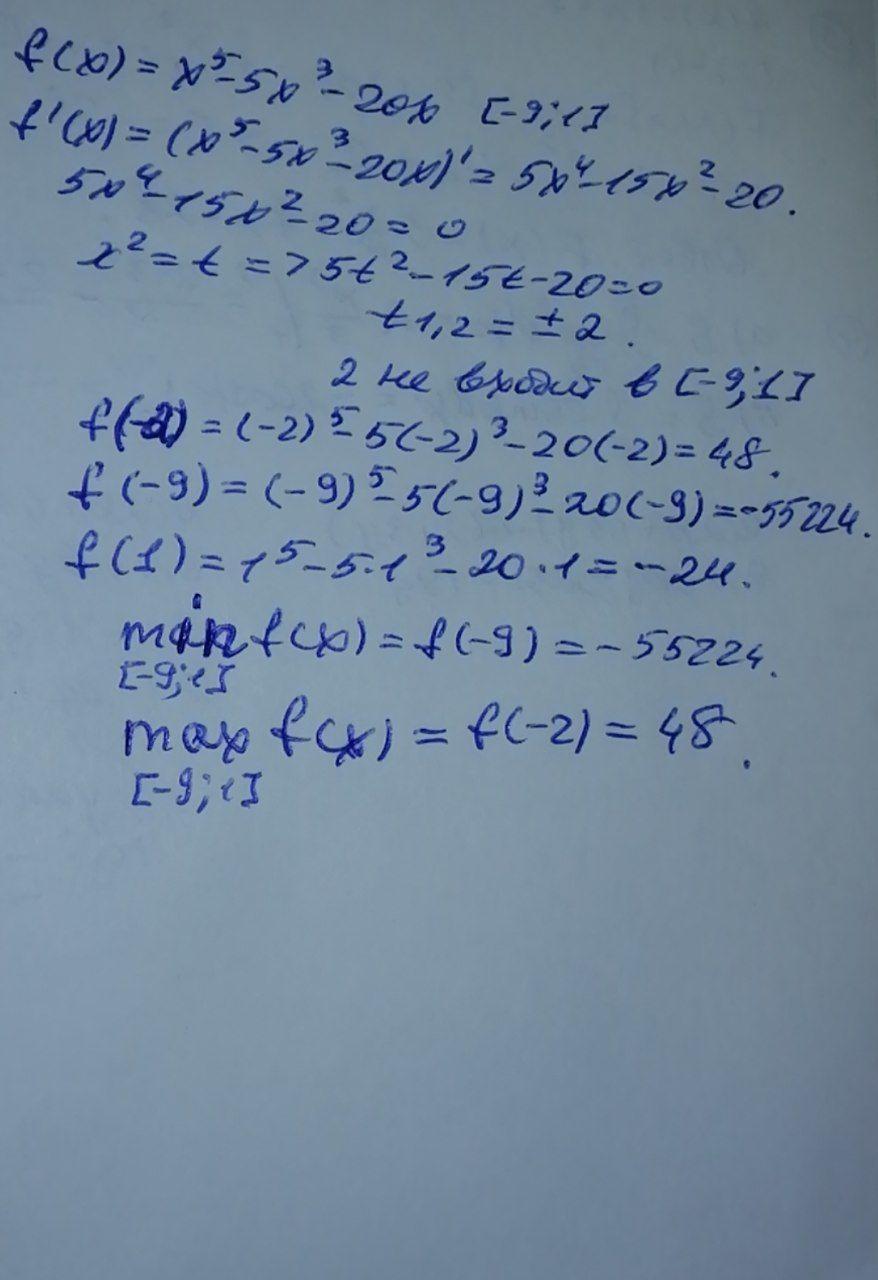 f(x) = x⁵ - 5x³ - 20x [-9;1]
f'(x) = (x⁵ - 5x³ - 20x)' = 5x⁴ - 15x² - 20.
5x⁴ - 15x² - 20 = 0
x² = t => 5t² - 15t - 20 = 0
t1,2 = ± 2.
2 не входит в [-9;1]
f(-2) = (-2)⁵ - 5(-2)³ - 20(-2) = 48.
f(-9) = (-9)⁵ - 5(-9)³ - 20(-9) = -55224.
f(1) = 1⁵ - 5·1³ - 20·1 = -24.
min f(x) = f(-9) = -55224.
[-9;1]
max f(x) = f(-2) = 48.
[-9;1]